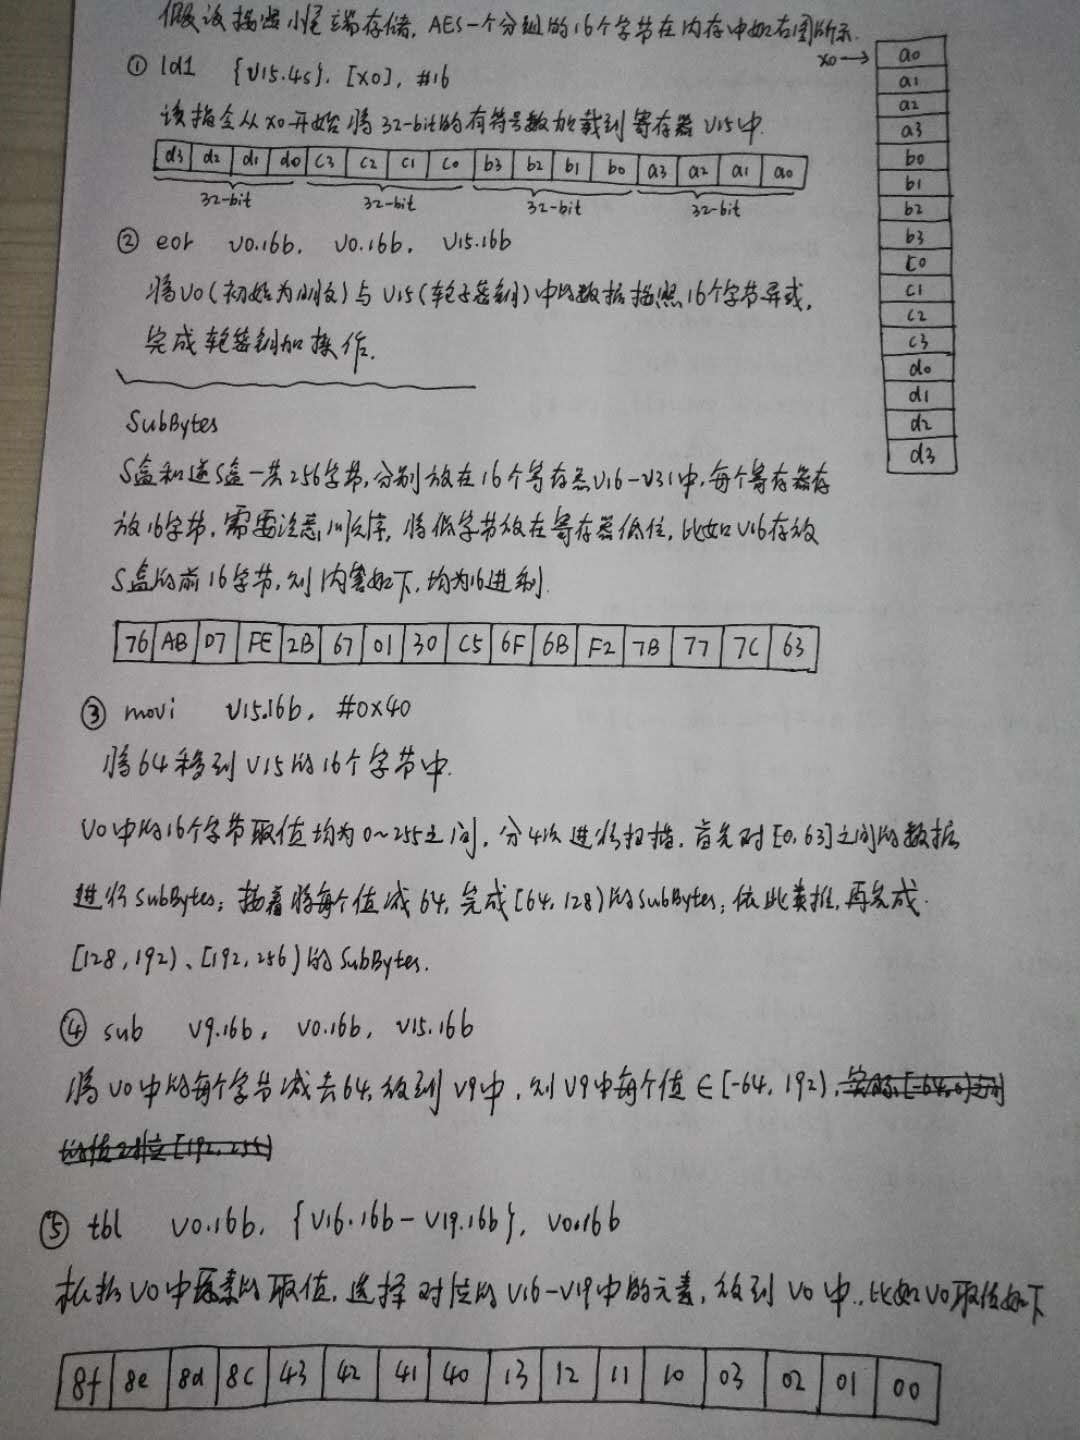 假设按照小尾端存储, AES一个分组的16个字节在内存中如右图所示.
① ld1 {v15.4s}, [x0], #16
x0→
a0
a1
a2
a3
b0
b1
b2
b3
c0
c1
c2
c3
d0
d1
d2
d3
该指令从x0开始将32-bit的有符号数加载到寄存器v15中.
d3 d2 d1 d0 c3 c2 c1 c0 b3 b2 b1 b0 a3 a2 a1 a0
32-bit 32-bit 32-bit 32-bit
② eor v0.16b, v0.16b, v15.16b
将v0(初始为明文)与v15(轮子密钥)中的数据按照16个字节异或,
完成轮密钥加操作.
SubBytes
S盒和逆S盒一共256字节,分别放在16个寄存器v16-v31中,每个寄存器存
放16字节,需要注意顺序,将低字节放在寄存器低位,比如v16存放
S盒的前16字节,则内容如下,均为16进制.
76 AB D7 FE 2B 67 01 30 C5 6F 6B F2 7B 77 7C 63
③ movi v15.16b, #0x40
将64移到v15的16个字节中.
v0中的16个字节取值均为0~255之间,分4次进行扫描,首先对[0,63]之间的数据
进行SubBytes;接着将每个值减64,完成[64,128)的SubBytes;依此类推,再完成
[128,192)、[192,256)的SubBytes.
④ sub v9.16b, v0.16b, v15.16b
将v0中的每个字节减去64,放到v9中,则v9中每个值∈[-64,192),
⑤ tbl v0.16b, {v16.16b-v19.16b}, v0.16b
根据v0中元素的取值,选择对应的v16-v19中的元素,放到v0中.,比如v0取值如下
8f 8e 8d 8c 43 42 41 40 13 12 11 10 03 02 01 00